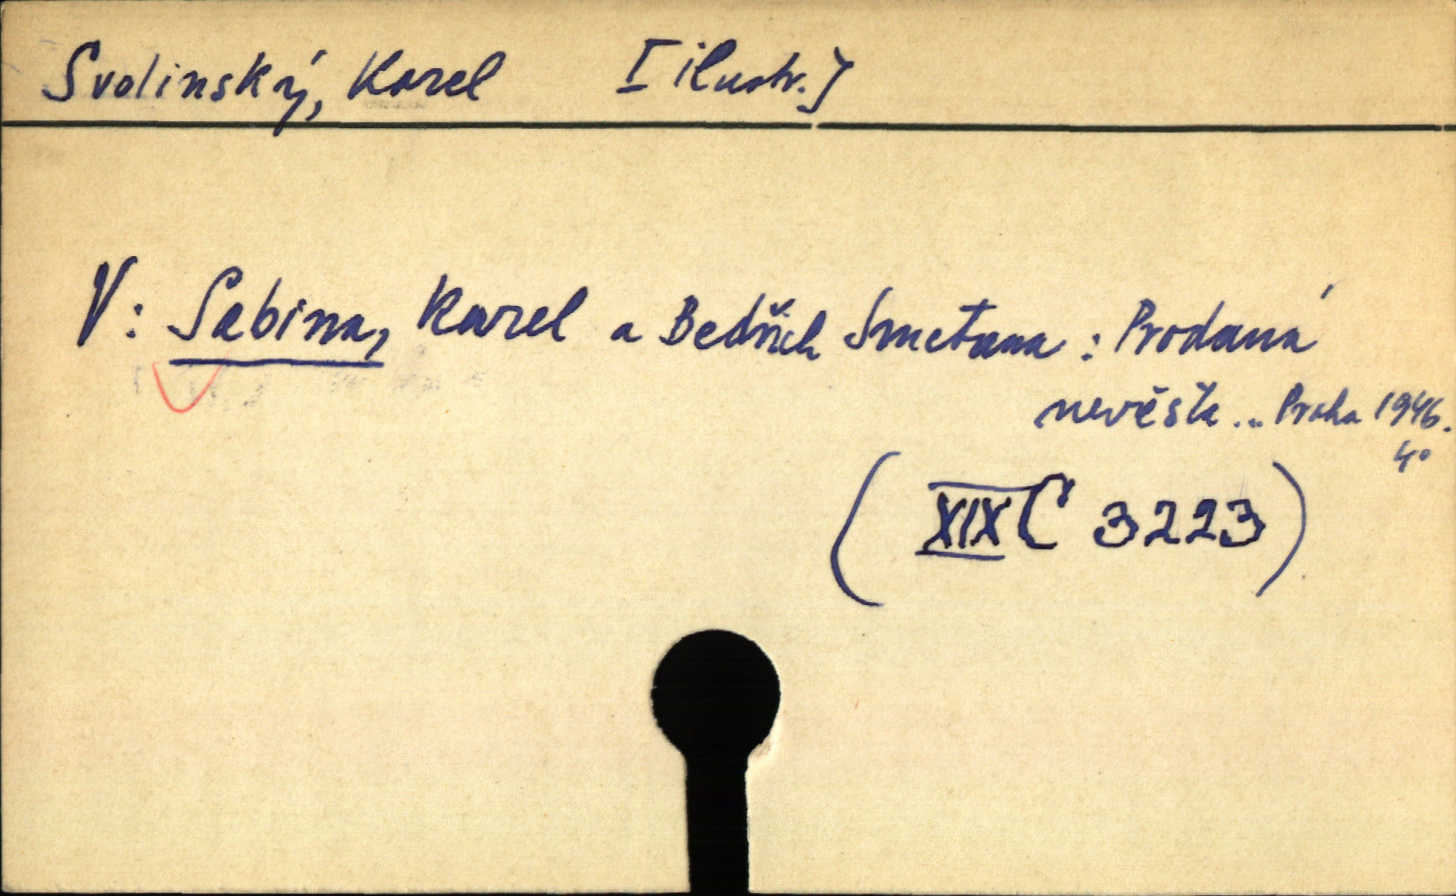 Svolinský, Karel [ilustr.]
V: Sabina, Karel a Bedřich Smetana: Prodaná
nevěsta... Praha 1946.
4°
(XIX C 3223)